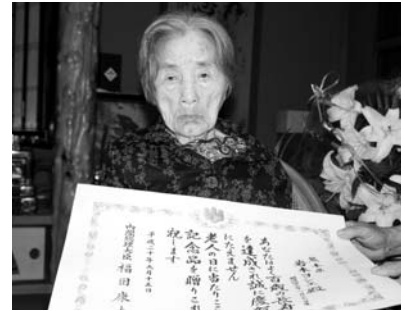 あなたは百歳の長寿
を達成され誠に慶
にたえません
老人の日に当たりこ
記念品を贈りこれ
祝します
平成二十年九月十五日
内閣総理大臣 福田康